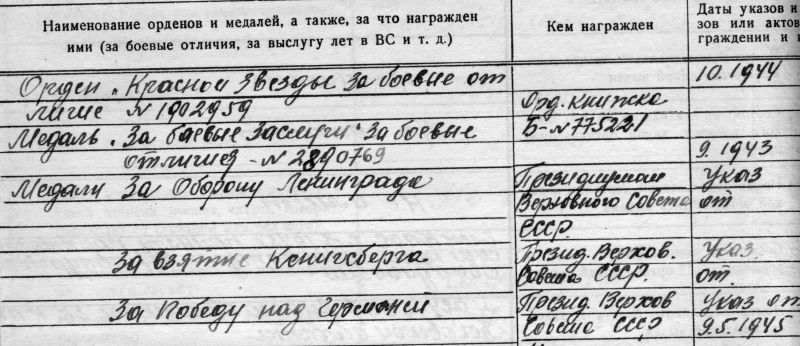 Наименование орденов и медалей, а также, за что награжден
ими (за боевые отличия, за выслугу лет в ВС и т. д.)
Кем награжден
Даты указов и
зов или актов
граждении и
Орден „Красной Звезды За боевые от
10.1944
личие N 1902959
Орд. книжка
Медаль „За боевые Заслуги" За боевые
Б-N 775221
отличия - N 2890769
9.1943
Медали За Оборону Ленинграда
Президиумом
Указ
Верховного Совета
от
СССР
За взятие Кенигсберга
Презид. Верхов.
Указ.
Совета СССР.
от.
За Победу над Германией
Презид. Верхов
Указ от
Совета СССР
9.5.1945